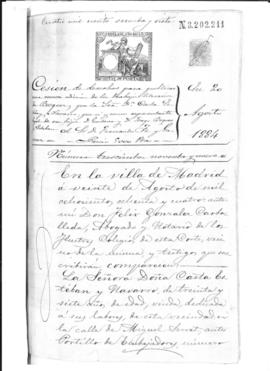 Cuatrocientos noventa y siete
N 3.202.211
Cesion de derechos para publicar
una nueva edicion de las
de Becquer, que la Sra. Dª Casta
y Navarro, por si y como representante
al Sr. D. Fernando Fe
20
Agosto
1884
Número trescientos noventa y nueve
En la villa de Madrid
á veinte de Agosto de mil
ochocientos ochenta y cuatro ante
mi Don Félix Gonzalez Carba
lleda, Abogado y Notario de los
Ilustres Colegios de esta Corte, veci
no de la misma y testigos que sus
cribirán comparece:
La Señora Doña Casta Es
teban y Navarro, de treinta y
siete años, de edad, viuda, dedicada
á sus labores, de esta vecindad en
la calle de Miguel Servet, antes
Portillo de Embajadores, número